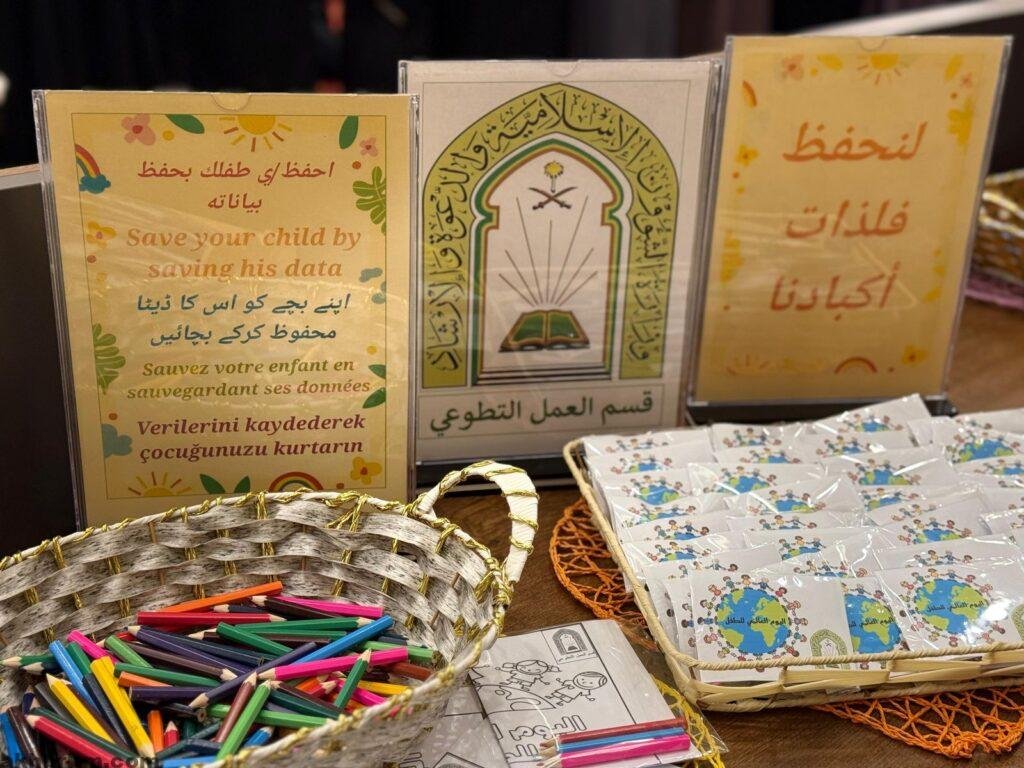 احفظ/ي طفلك بحفظ
بياناته
Save your child by
saving his data
اپنے بچے کو اس کا ڈیٹا
محفوظ کرکے بچائیں
Sauvez votre enfant en
sauvegardant ses données
Verilerini kaydederek
çocuğunuzu kurtarın
وزارة الشؤون الإسلامية والدعوة والإرشاد
قسم العمل التطوعي
لنحفظ
فلذات
أكبادنا
اليوم العالمي للطفل
اليوم العالمي للطفل
اليوم